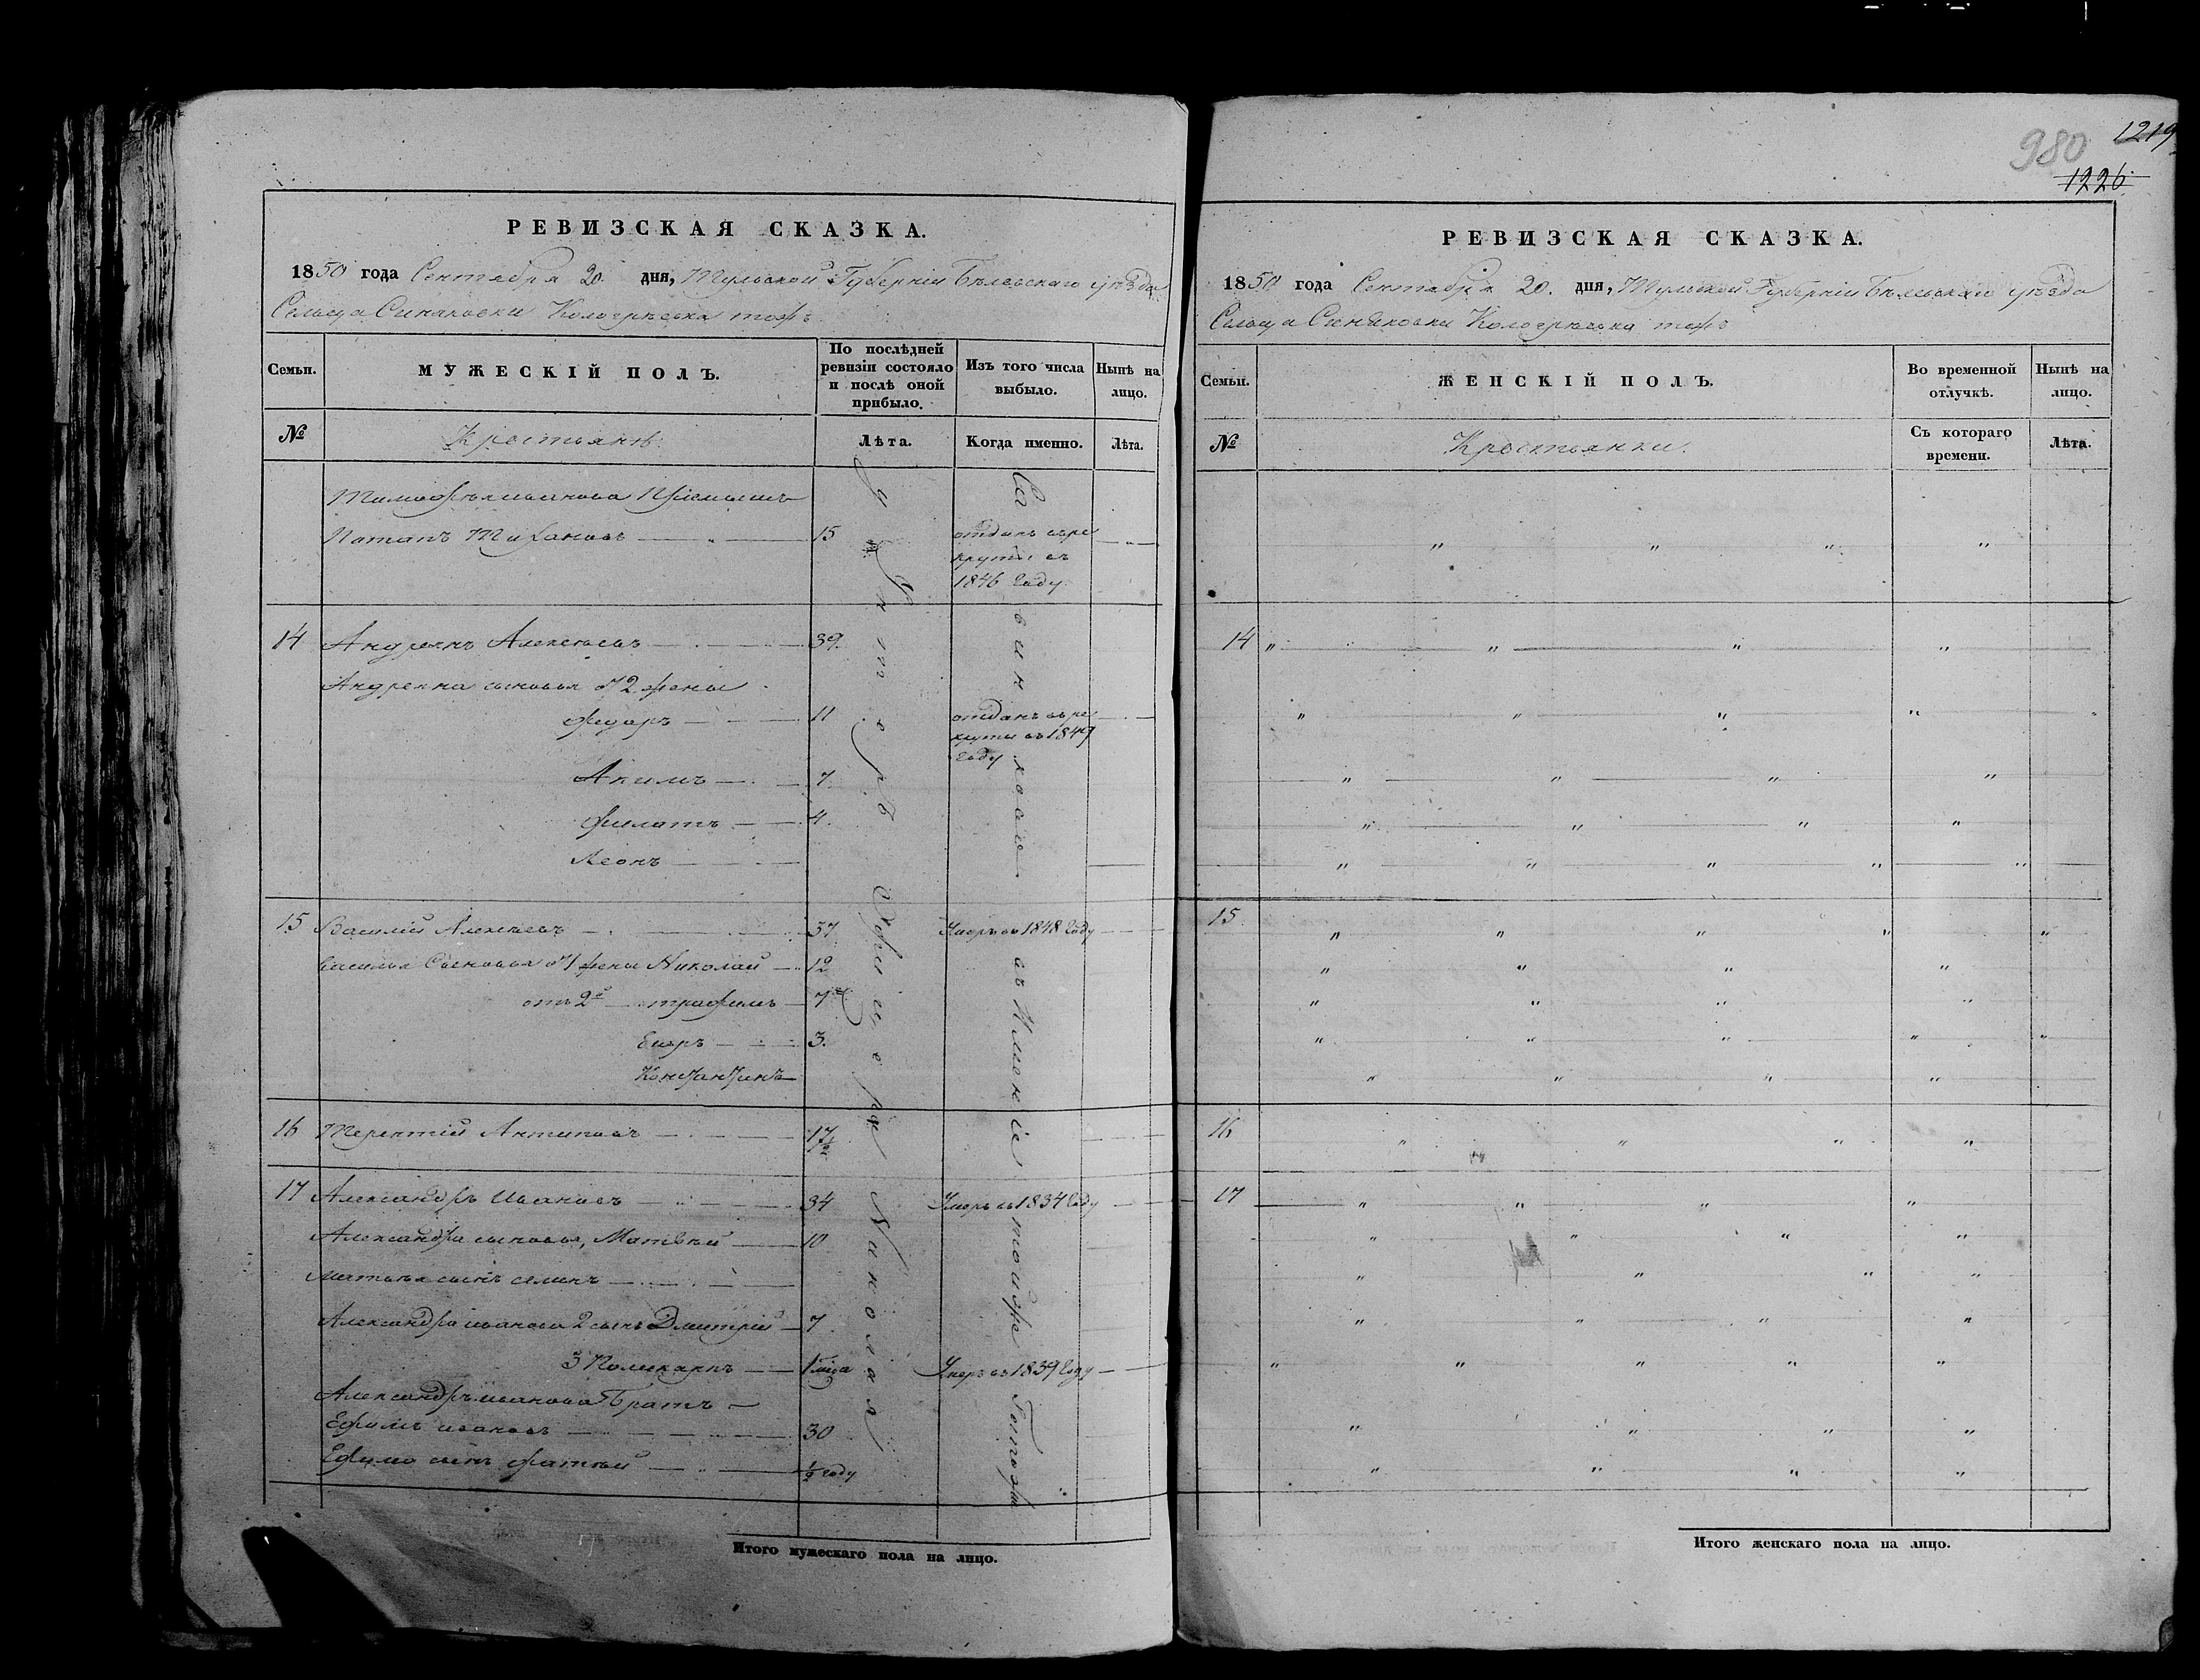 980
1219
1226
РЕВИЗСКАЯ СКАЗКА.
1850 года Сентября 20. дня, Тульской Губерніи Бѣлевскаго уѣзда
Сельца Синяковки Кологривовка тожъ
Семьи.
МУЖЕСКІЙ ПОЛЪ.
По послѣдней ревизіи состояло и послѣ оной прибыло.
Изъ того числа выбыло.
Нынѣ на лицо.
№
Крестьяне
Лѣта.
Когда именно.
Лѣта.
Тимофѣя иванова
Потапъ 15 отданъ въ ре
круты въ
1846 Году
14 Андреянъ Алексѣевъ 39.
Андреяна сыновья от 2 жены
Федоръ 11 отданъ въ ре
круты въ 1849
Году
Акимъ 7.
Филатъ 4.
Леонъ
15 Василій Алексѣевъ 37 Умеръ въ 1848 Году
Василья Сыновья от 1 жены Николай 12
отъ 2й трофимъ 7
Егоръ 3.
Константинъ
16 Терентій Антиповъ 17½
17 Александръ Ивановъ 34 Умеръ въ 1834 Году
Александра сыновья, Матвѣй 10
Матвѣя сынъ семинъ
Александра иванова 2 сынъ Дмитрій 7
3 Поликарпъ 1 Умеръ въ 1839 Году
Александръ иванова Братъ
Ефимъ ивановъ 30
Ефима сынъ Фатѣй ½ году
Унтеръ Офицера Николая
въ Именіе
Итого мужескаго пола на лицо.
РЕВИЗСКАЯ СКАЗКА.
1850 года Сентября 20. дня, Тульской Губерніи Бѣлевскаго уѣзда
Сельца Синяковки Кологривовка тожъ
Семьи.
ЖЕНСКІЙ ПОЛЪ.
Во временной отлучкѣ.
Нынѣ на лицо.
№
Крестьянки.
Съ котораго времени.
Лѣта.
14
15
16
17
Итого женскаго пола на лицо.